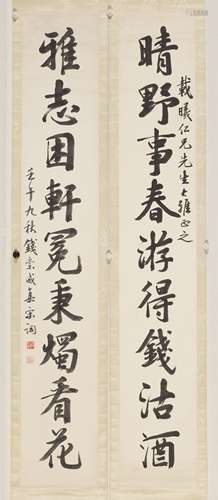 晴野事春游得錢沽酒
戴曦仁兄先生大雅正之
雅志困軒冕秉燭看花
壬午九秋錢崇威集宋詞